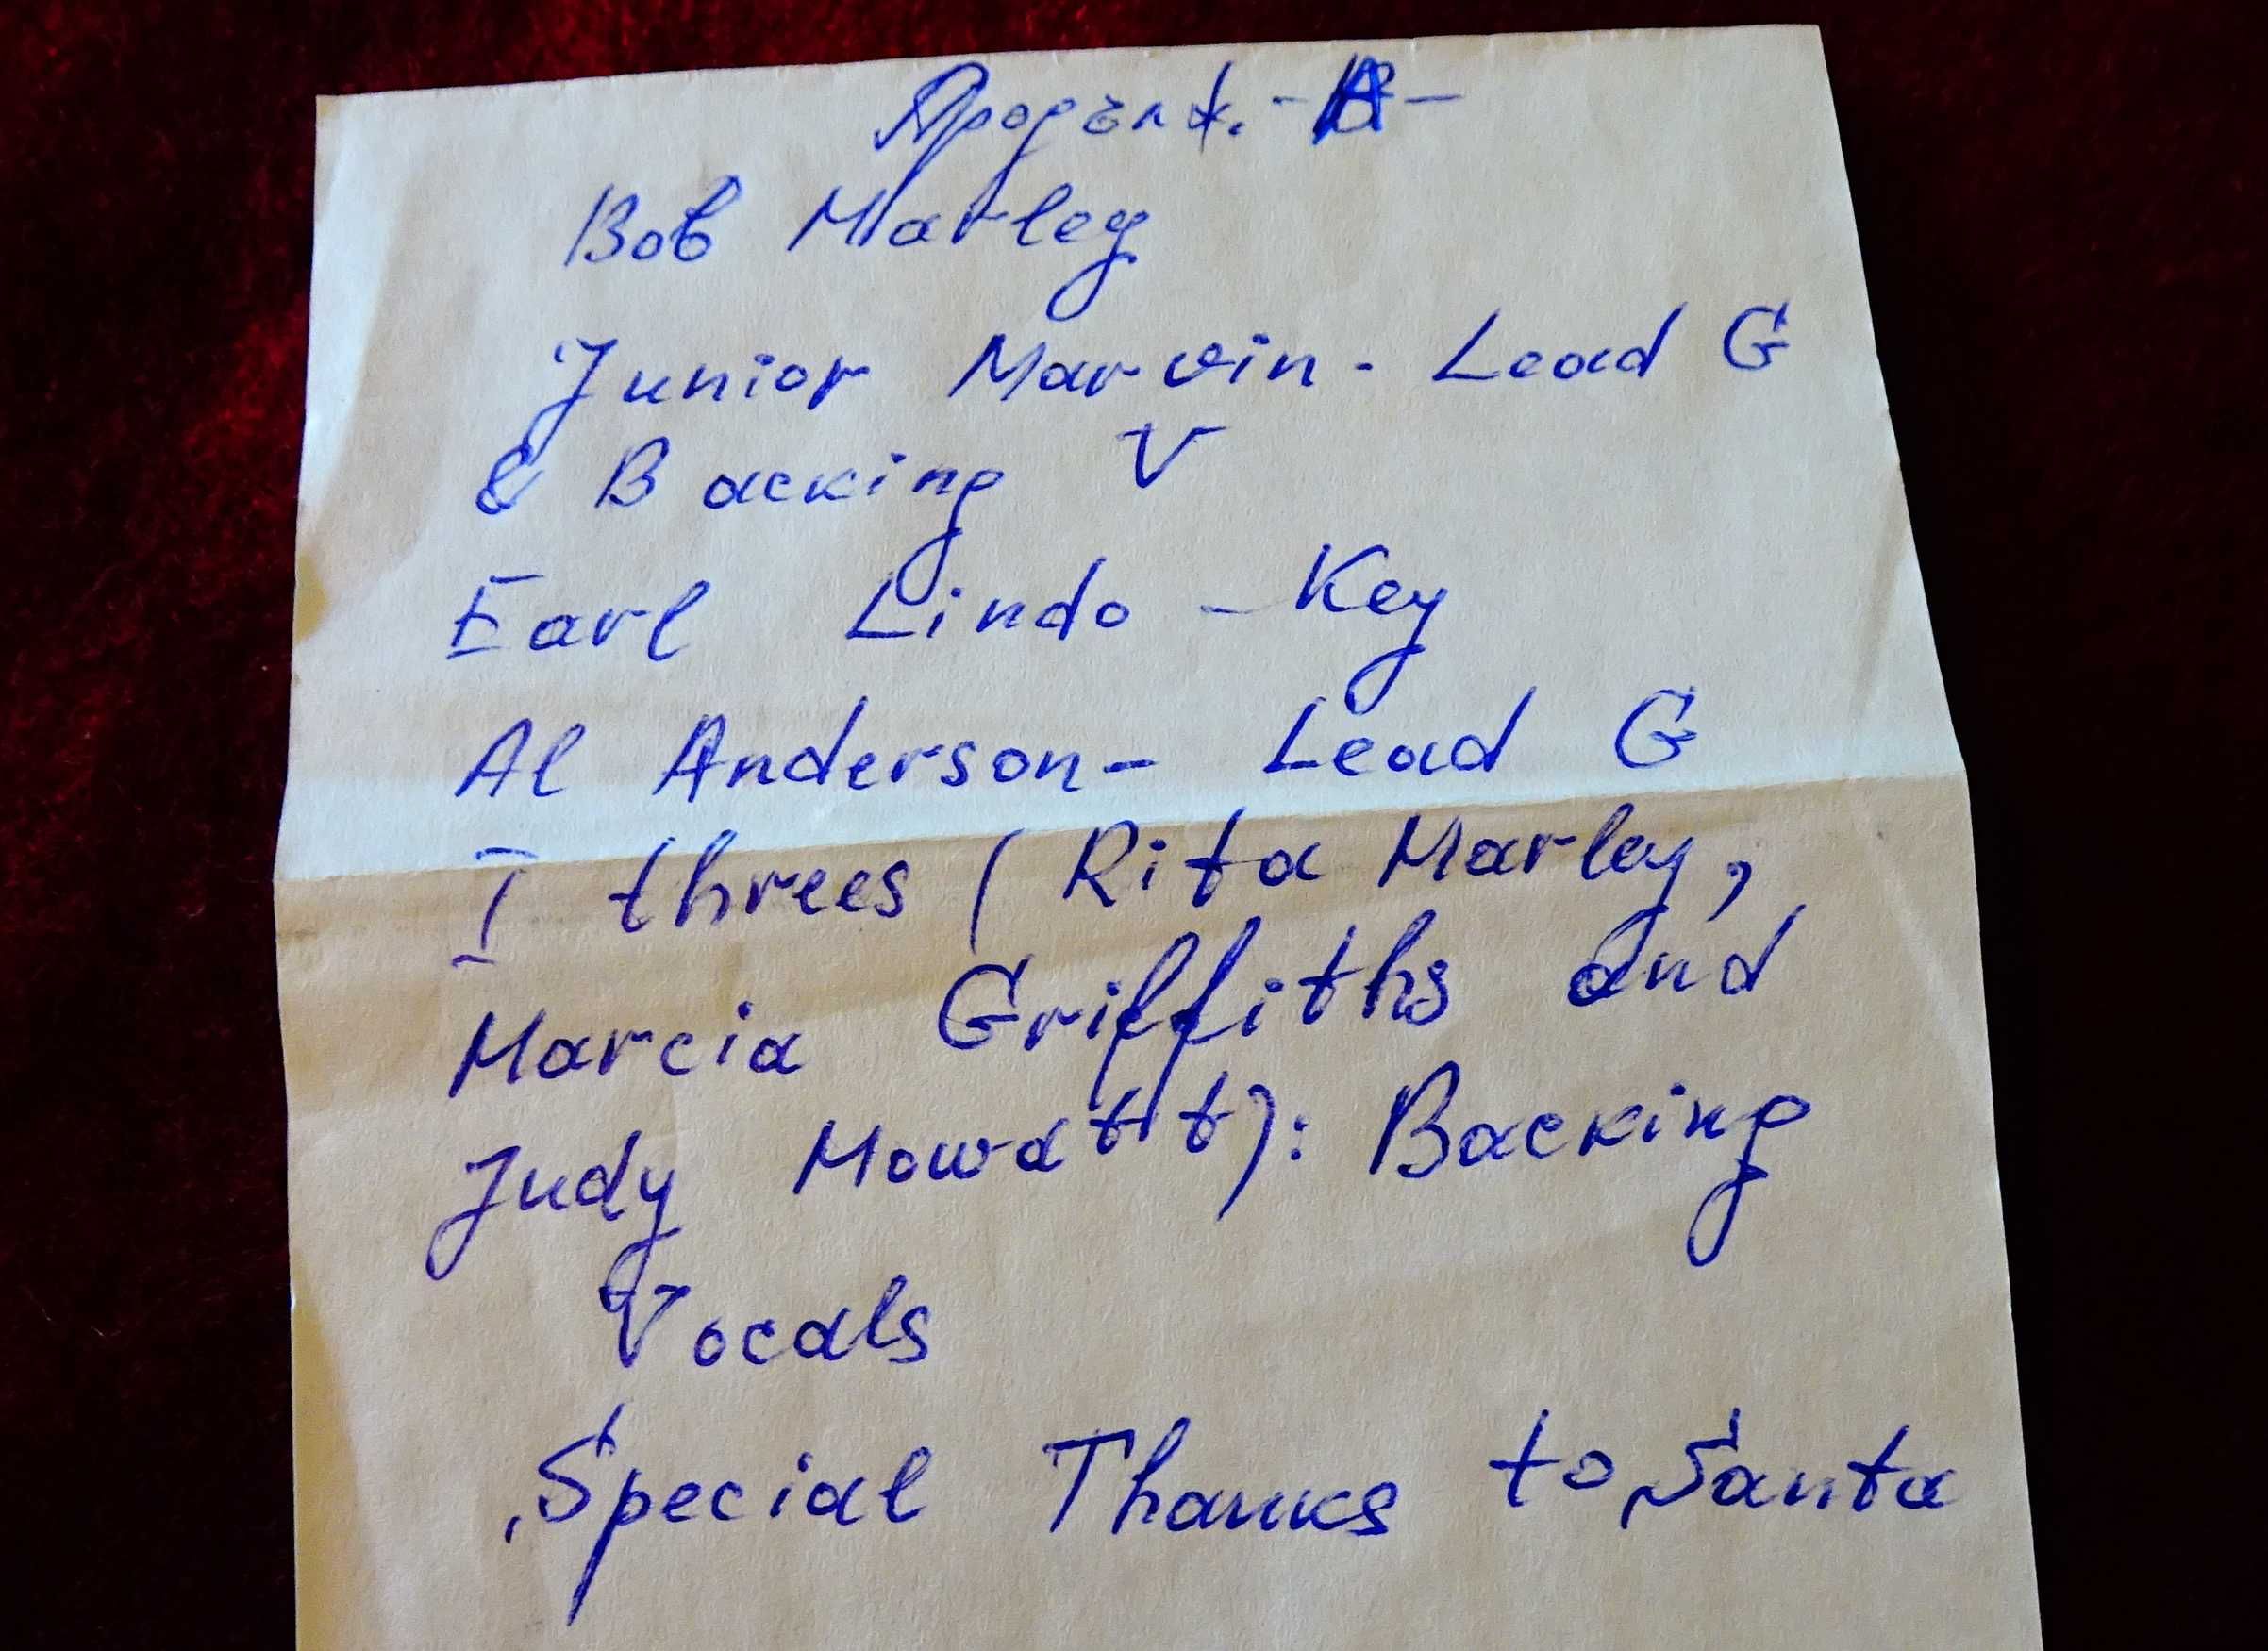 Продълж. -A-
Bob Marley
Junior Marvin - Lead G
& Backing V
Earl Lindo - Key
Al Anderson - Lead G
I threes (Rita Marley,
Marcia Griffiths and
Judy Mowattt): Backing
Vocals
Special Thanks to Santa